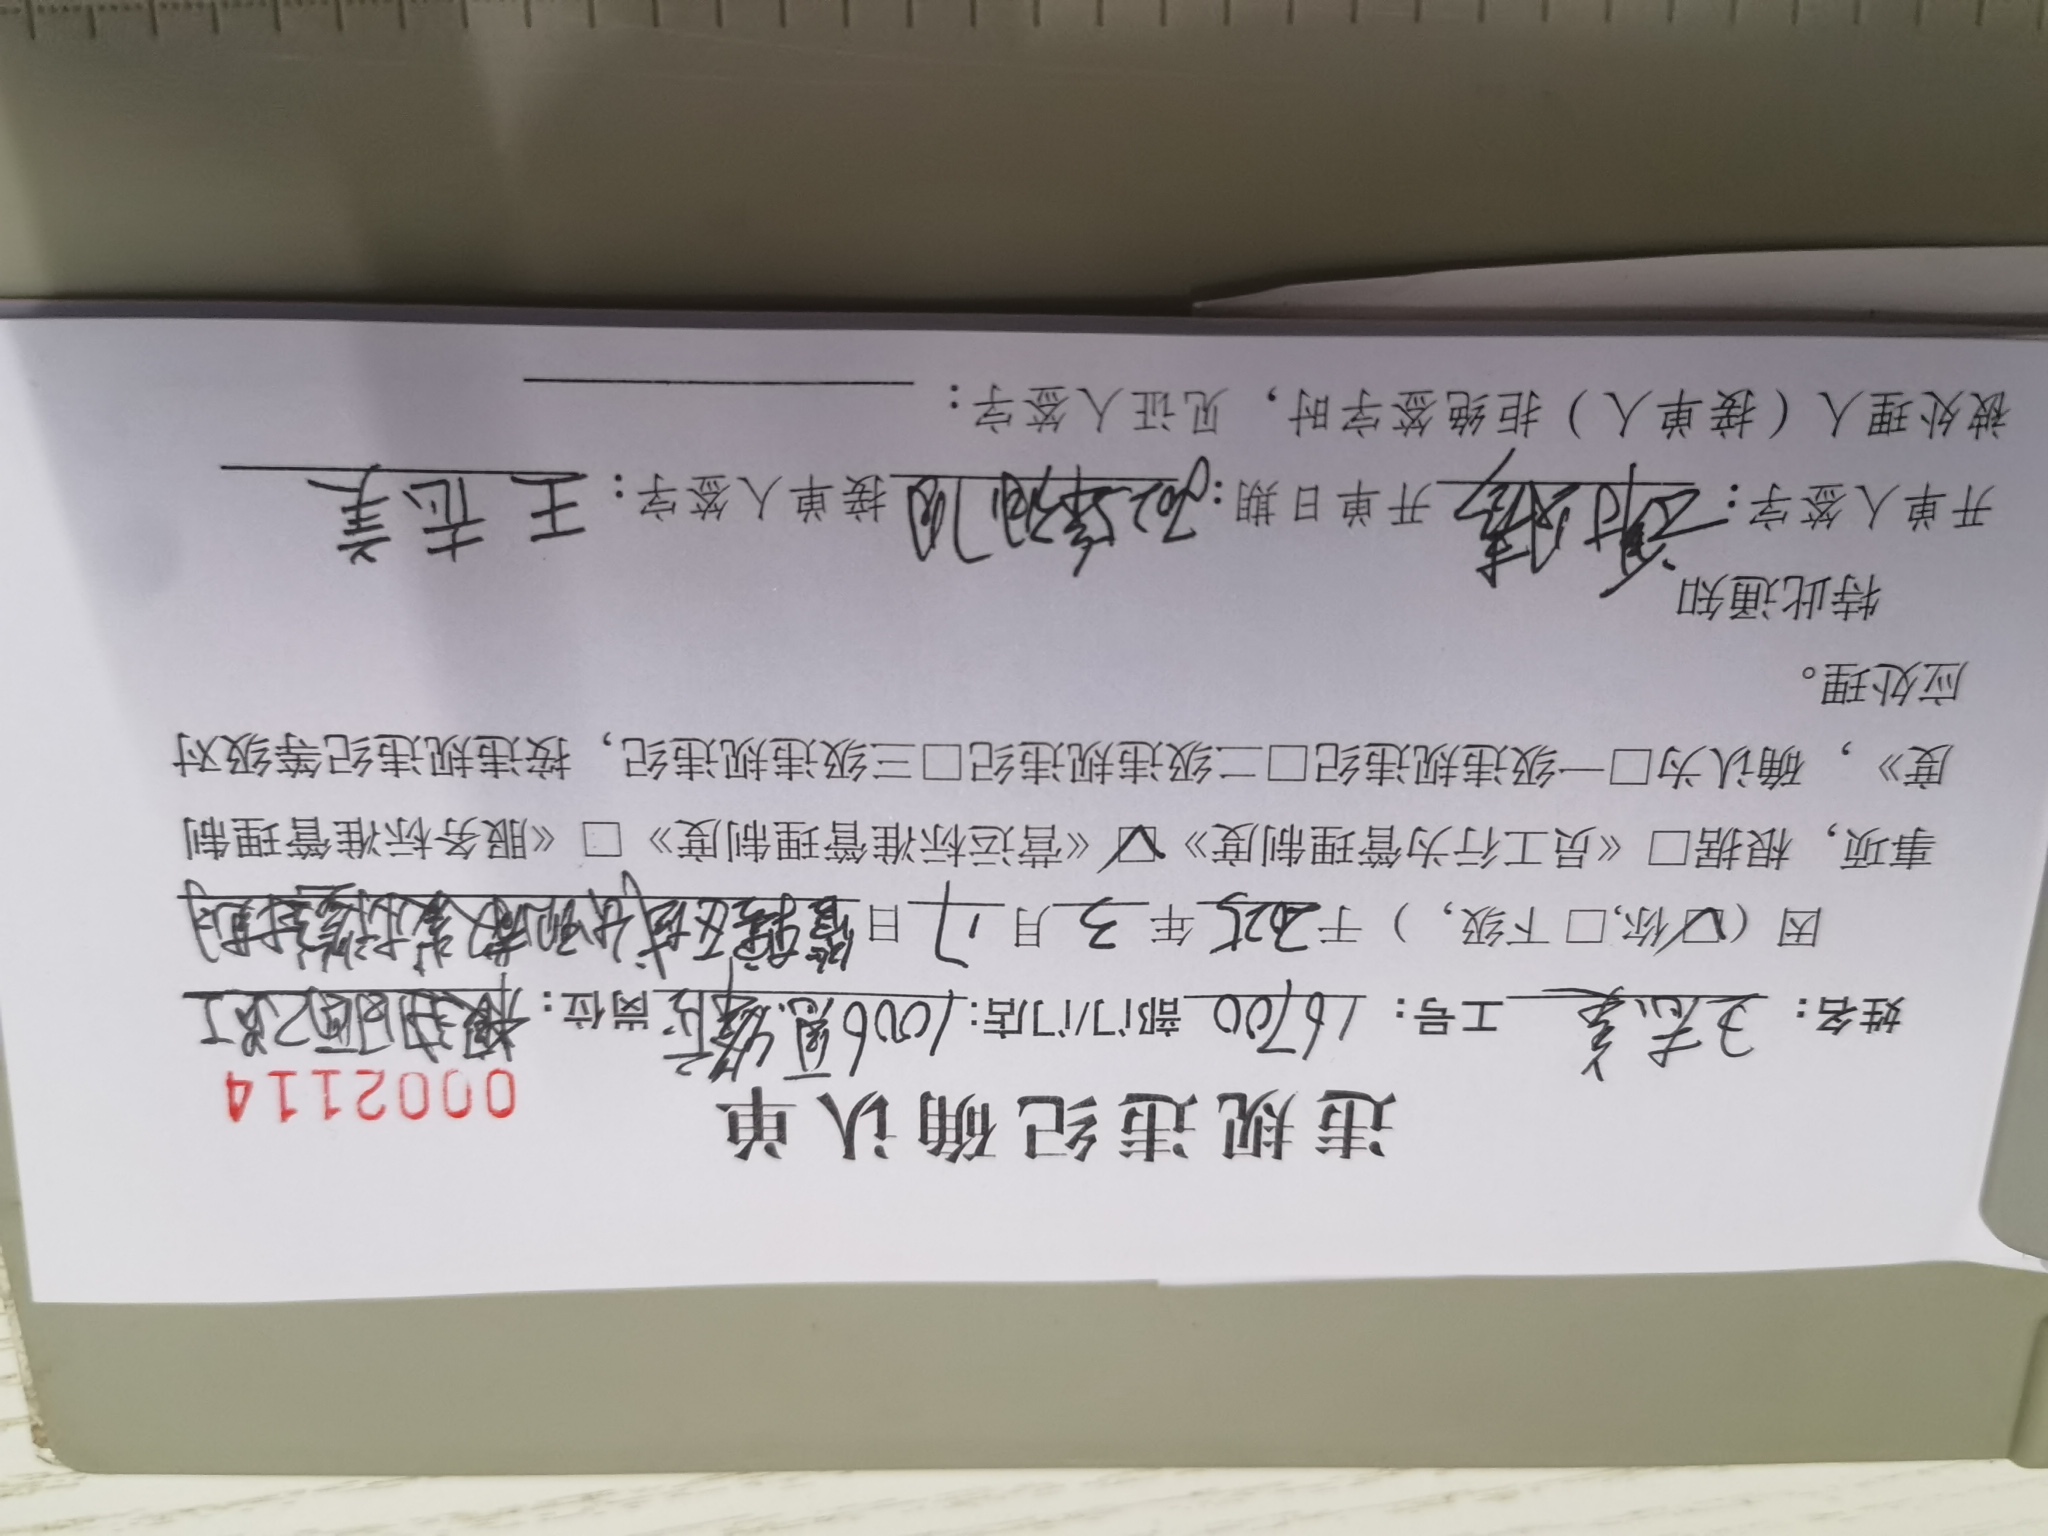 违规违纪确认单
0002114
姓名：王志美 工号：16700 部门/门店：1006 岗位：
因（☑你，□下级，）于2025年3月17日管辖区域
事项，根据□《员工行为管理制度》☑《营运标准管理制度》□《服务标准管理制
度》，确认为□一级违规违纪□二级违规违纪□三级违规违纪，按违规违纪等级对
应处理。
特此通知
开单人签字： 开单日期：2025年3月17日 接单人签字：王志美
被处理人（接单人）拒绝签字时，见证人签字：